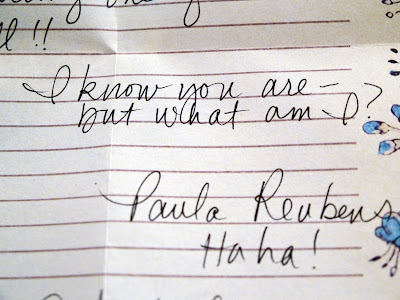 ll !!
I know you are –
but what am I?
Paula Reubens
Haha!